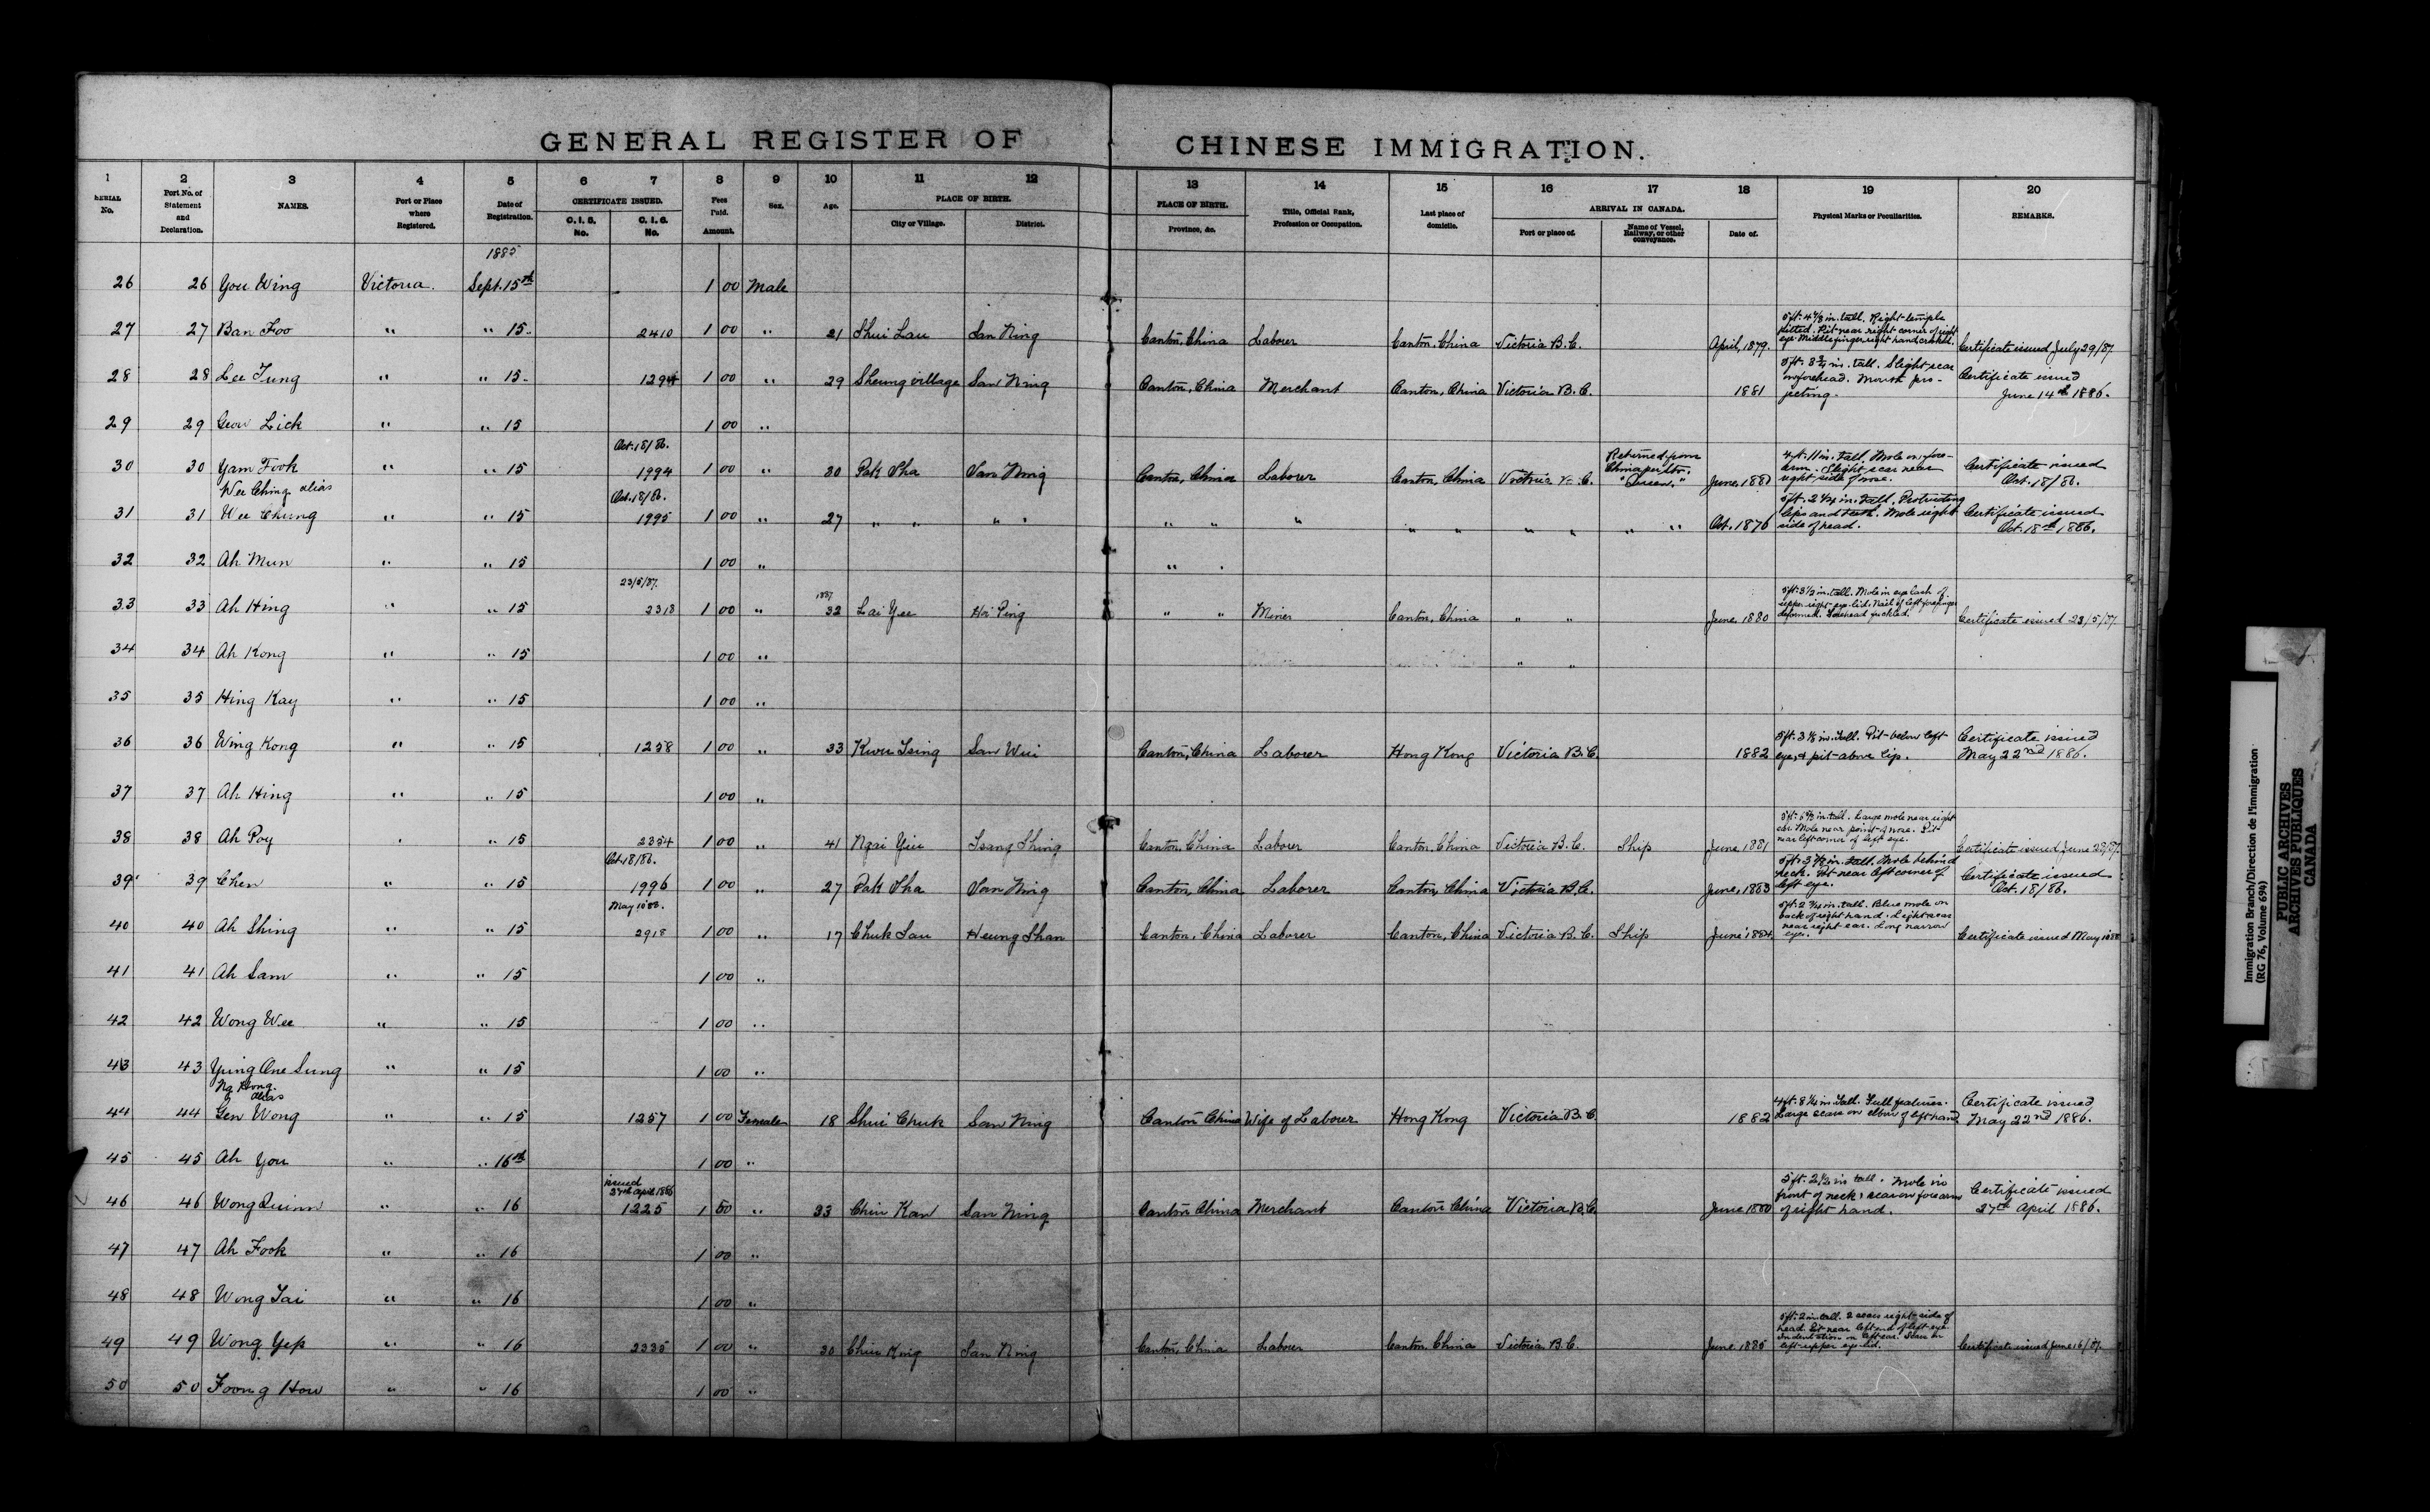 GENERAL REGISTER OF CHINESE IMMIGRATION.
1 2 3 4 5 6 7 8 9 10 11 12 13 14 15 16 17 18 19 20
SERIAL No. Port No. of Statement and Declaration. NAMES. Port or Place where Registered. Date of Registration. CERTIFICATE ISSUED. C. I. 5. No. C. I. 6. No. Fees Paid. Amount. Sex. Age. PLACE OF BIRTH. City or Village. District. PLACE OF BIRTH. Province, &c. Title, Official Rank, Profession or Occupation. Last place of domicile. ARRIVAL IN CANADA. Port or place of. Name of Vessel, Railway, or other conveyance. Date of. Physical Marks or Peculiarities. REMARKS.
1885
26 26 You Wing Victoria. Sept. 15th 1 00 Male
27 27 Ban Foo " " 15 2410 1 00 " 21 Shui Lau San Ning Canton, China Laborer Canton, China Victoria B.C. April, 1879. 5 ft. 4 1/8 in. tall. Right temple pitted. Pit near right corner of right eye. Middle finger right hand crooked. Certificate issued July 29/87.
28 28 Lee Tung " " 15 1294 1 00 " 29 Sheung village San Ning Canton, China Merchant Canton, China Victoria B.C. 1881 5 ft. 3 3/4 in. tall. Slight scar on forehead. Mouth projecting. Certificate issued June 14th 1886.
29 29 Geow Lick " " 15 1 00 "
Oct. 18/86.
30 30 Yam Fook " " 15 1994 1 00 " 30 Pak Sha San Ning Canton, China Laborer Canton, China Victoria B.C. Returned from China per Str. "Queen." June, 1881 4 ft. 11 in. tall. Mole on forearm. Slight scar near right side of nose. Certificate issued Oct. 18/86.
Wee Ching alias Oct. 18/86.
31 31 Wee Chung " " 15 1995 1 00 " 27 " " " " " " " " " " " " " Oct. 1876 5 ft. 2 1/4 in. tall. Protruding lips and teeth. Mole right side of head. Certificate issued Oct. 18th 1886.
32 32 Ah Mun " " 15 1 00 " " "
23/5/87. 1887
33 33 Ah Hing " " 15 2318 1 00 " 32 Lai Yee Hoi Ping " " Miner Canton, China " " June, 1880 5 ft. 3 1/2 in. tall. Mole in eye lash of upper right eye-lid. Nail of left forefinger deformed. Forehead freckled. Certificate issued 23/5/87.
34 34 Ah Kong " " 15 1 00 " " "
35 35 Hing Kay " " 15 1 00 "
36 36 Wing Kong " " 15 1258 1 00 " 33 Kwu Tsing San Wui Canton, China Laborer Hong Kong Victoria B.C. 1882 5 ft. 3 1/8 in. tall. Pit below left eye, & pit above lip. Certificate issued May 22nd 1886.
37 37 Ah Hing " " 15 1 00 "
38 38 Ah Poy " " 15 2354 1 00 " 41 Ngai Yiu Tsang Shing Canton, China Laborer Canton, China Victoria B.C. Ship June, 1881 in. tall. Large mole near right ear. Mole near point of nose. Pit near left corner of left eye. Certificate issued June
Oct. 18/86.
39 39 Chen " " 15 1996 1 00 " 27 Pak Sha San Ning Canton, China Laborer Canton, China Victoria B.C. June, 1883 5 ft. 3 7/8 in. tall. Mole behind neck. Pit near left corner of left eye. Certificate issued Oct. 18/86.
May 10 88.
40 40 Ah Shing " " 15 2918 1 00 " 17 Chuk Sau Heung Shan Canton, China Laborer Canton, China Victoria B.C. Ship June 1884 5 ft. 2 3/4 in. tall. Blue mole on back of right hand. Light scar near right ear. Long narrow eyes. Certificate issued May 10 88
41 41 Ah Sam " " 15 1 00 "
42 42 Wong Wee " " 15 1 00 "
43 43 Ying One Sung " " 15 1 00 "
Ng Hong alias
44 44 Gen Wong " " 15 1257 1 00 Female 18 Shui Chuk San Ning Canton China Wife of Laborer Hong Kong Victoria B.C. 1882 4 ft. 8 1/4 in. tall. Full features. Large scars on elbow of left hand Certificate issued May 22nd 1886.
45 45 Ah You " " 16th 1 00 "
issued 27th April 1886
46 46 Wong Quinn " " 16 1225 1 50 " 33 Chiu Kan San Ning Canton China Merchant Canton China Victoria B.C. June 1880 5 ft. 2 1/2 in tall. Mole in front of neck & scar on forearm of right hand. Certificate issued 27th April 1886.
47 47 Ah Fook " " 16 1 00 "
48 48 Wong Tai " " 16 1 00 "
49 49 Wong Yip " " 16 2335 1 00 " 30 Chiu King San Ning Canton, China Laborer Canton China Victoria B.C. June 1885 5 ft. 2 in tall. 2 scars right side of head. Pit near left end of left eye. Indentation in left ear. Scar on left upper eye-lid. Certificate issued June 16/87.
50 50 Foong How " " 16 1 00 "
Immigration Branch/Direction de l'immigration
(RG 76, Volume 694)
PUBLIC ARCHIVES
ARCHIVES PUBLIQUES
CANADA